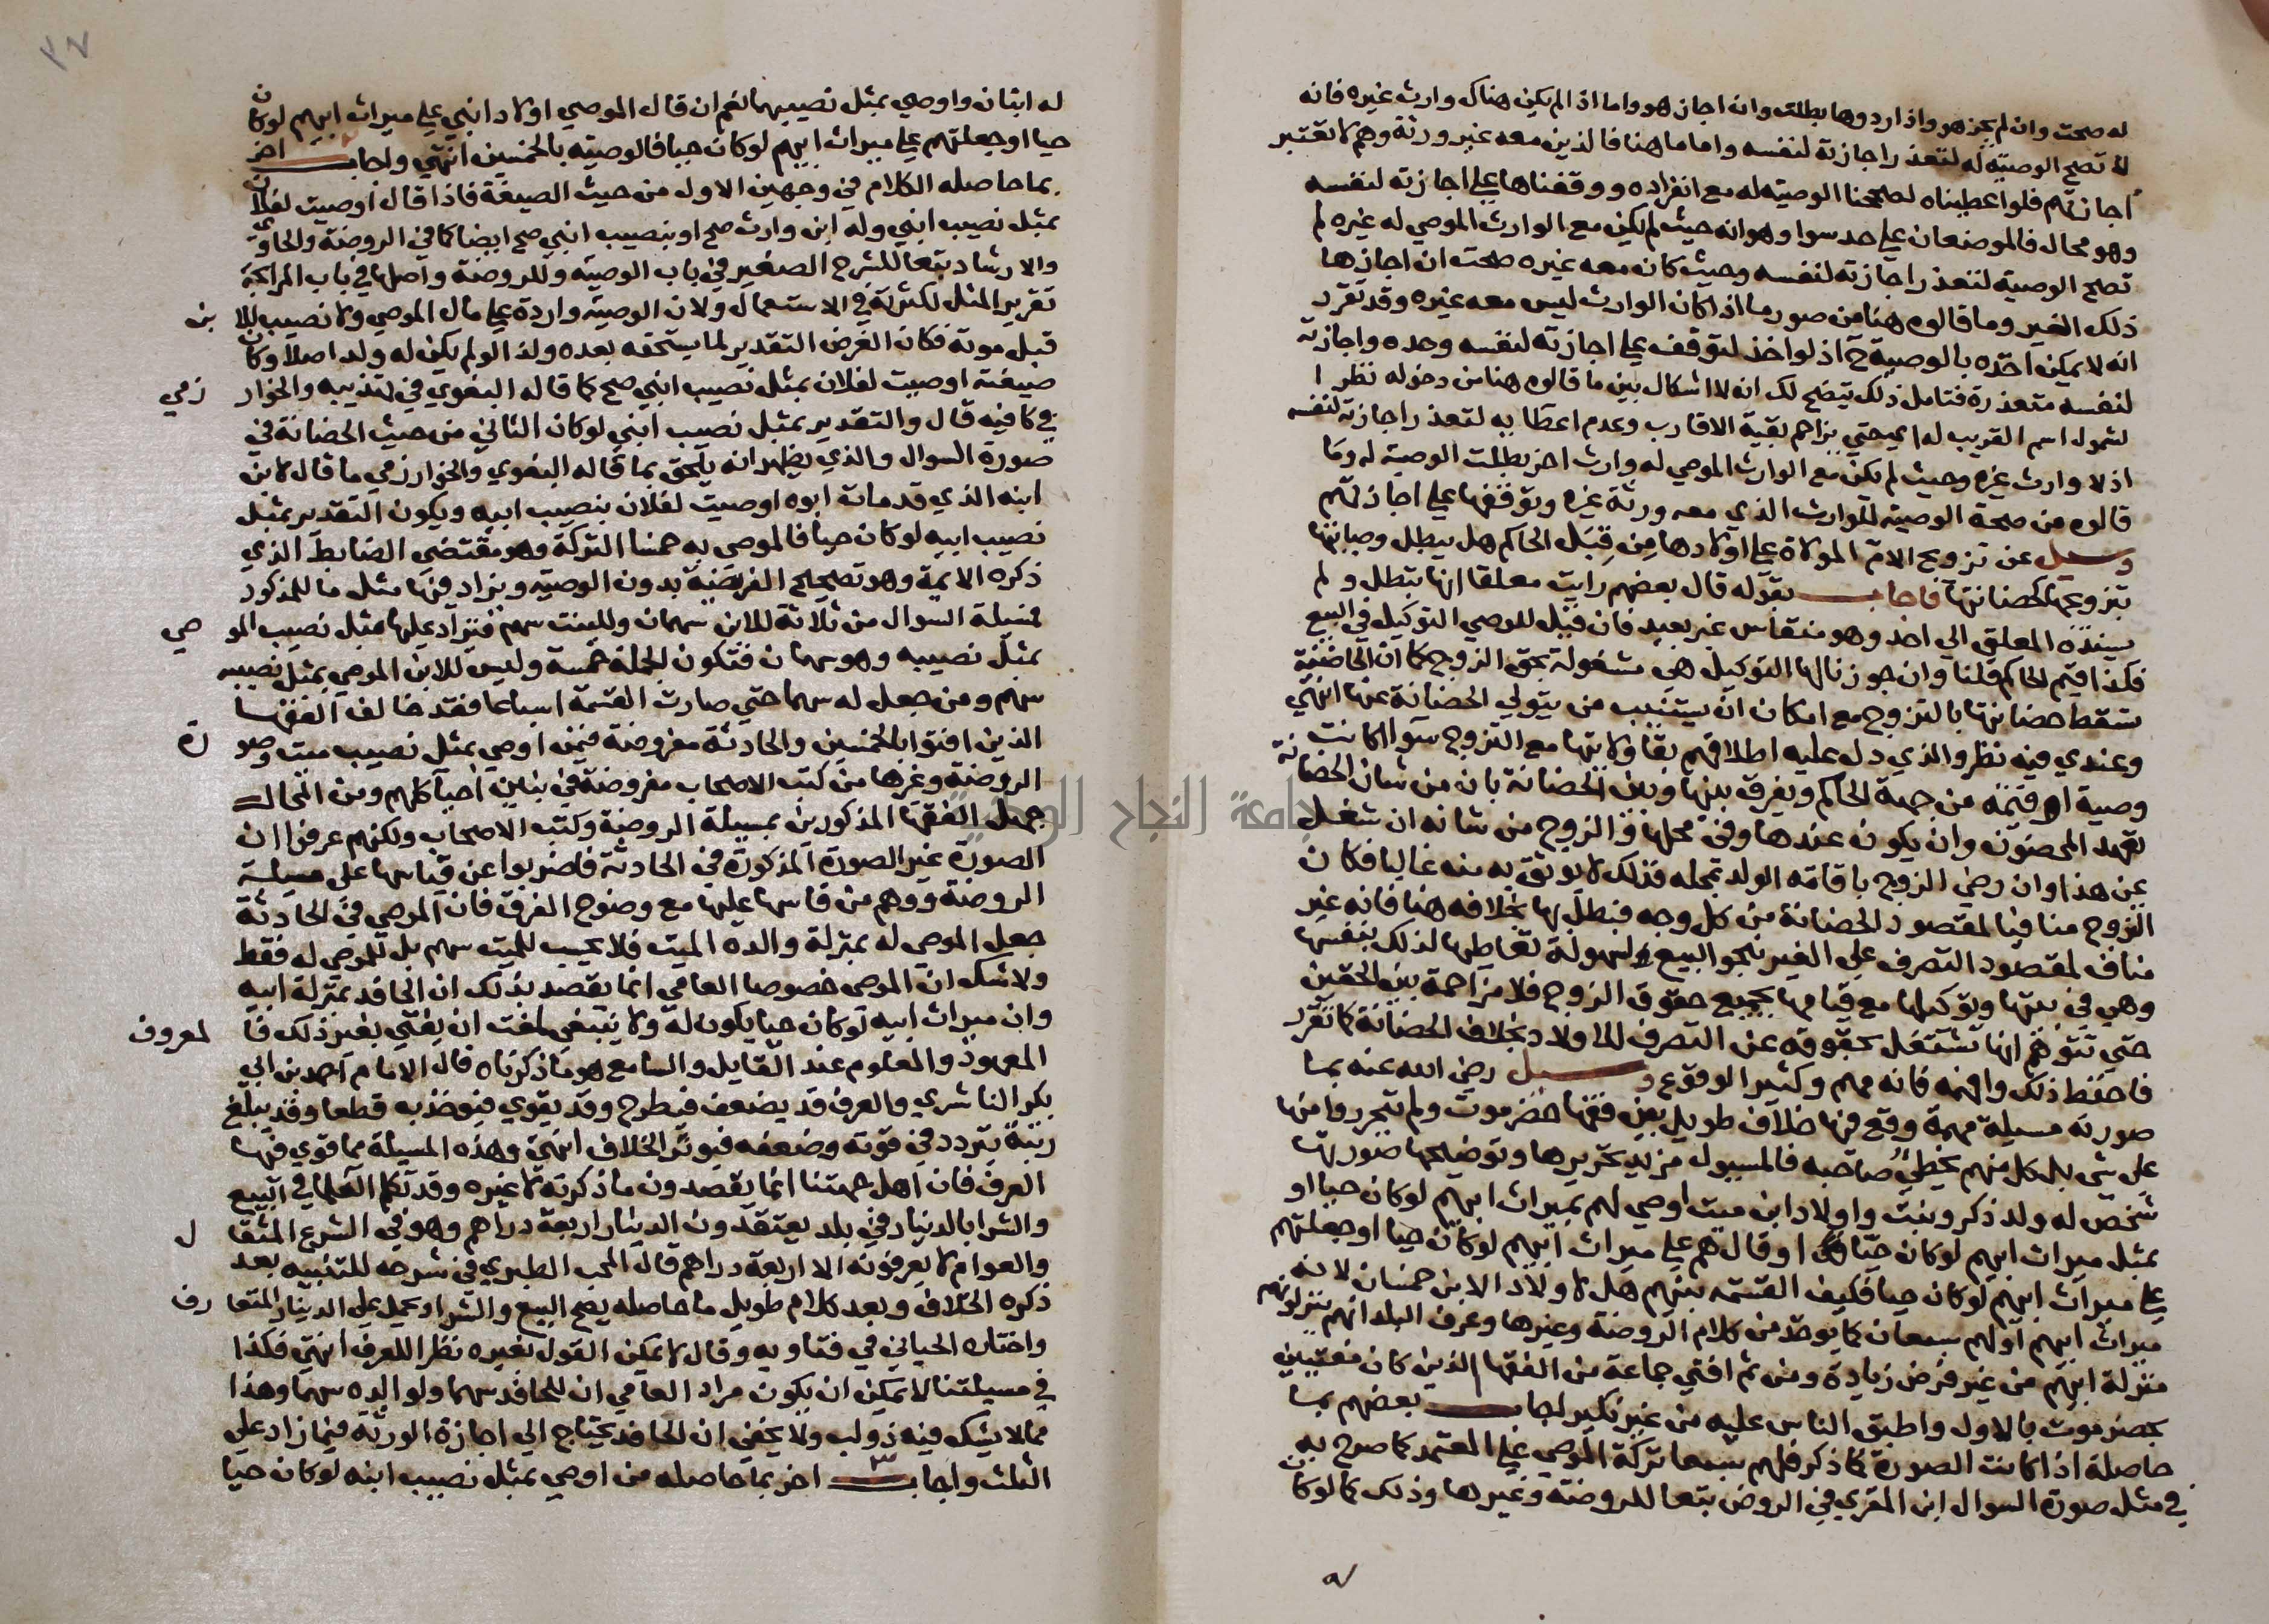 له صحت وان لم يجز هو واذا ردوها بطلت وان اجاز هو واما اذا لم يكن هناك وارث غيره فانه
لا تصح الوصية له لتعذر اجازته لنفسه واما ما هنا فالذين معه غير ورثة وهم لا تعتبر
اجازتهم فلو اعطيناه لصححنا الوصية له مع انفراده ووقفناها على اجازته لنفسه
وهو محال فالموضعان على حد سوا وهو انه حيث لم يكن مع الوارث الموصي له غيره لم
تصح الوصية لتعذر اجازته لنفسه وحيث كان معه غيره صحت ان اجازها
ذلك الغير وما قالوه هنا من صور ما اذا كان الوارث ليس معه غيره وقد تقرر
انه لا يمكن اخذه بالوصية ح اذ لو اخذ لتوقف على اجازته لنفسه وحده واجازته
لنفسه متعذرة فتامل ذلك يتضح لك انه لا اشكال بين ما قالوه هنا من دخوله نظرا
لشمول اسم القريب له اي حتي يزاحم بقية الاقارب وعدم اعطا به لتعذر اجازته لنفسه
اذ لا وارث غيره وحيث لم يكن مع الوارث الموصي له وارث اخر بطلت الوصية له وما
قالوه من صحة الوصية للوارث الذي معه ورثة غيره وتوقفها على اجازتهم
وسيل عن تزويج الام المولاة على اولادها من قبل الحاكم هل يبطل وصايتها
بتزويجها كحضانتها فاجاب بقوله قال بعضهم رايت معلقا انها تبطل ولم
يسنده المعلق الي احد وهو منقاس غير بعيد فان قيل للوصي التوكيل في البيع
فكذا قيم الحاكم قلنا وان جوزنا لها التوكيل هي مشغولة بحق الزوج كما ان الحاضنة
تسقط حضانتها بالتزوج مع امكان ان يستنيب من يتولي الحضانة عنها انتهي
وعندي فيه نظر والذي دل عليه اطلاقهم بقا ولايتها مع التزوج سوا اكانت
وصية او قيمة من جهة الحاكم ويفرق بينها وبين الحضانة بان من شان الحضانة
تعهد المحضون وان يكون عندها وفي محلها والزوج من شانه ان شغل
عن هذا وان رضي الزوج باقامة الولد بمحله فذلك لا يوثق به منه غالبا فكان
الزوج منافيا لمقصود الحضانة من كل وجه فبطل بها بخلافه هنا فانه غير
مناف لمقصود التصرف على الغير بنحو البيع لسهولة تعاطيها لذلك بنفسها
وهي في بيتها وتوكيلها مع قيامها بجميع حقوق الزوج فلا مزاحمة بين الحقين
حتي يتوهم انها تشتغل بحقوقه عن التصرف للاولاد بخلاف الحضانة كما تقرر
فاحفظ ذلك وافهمه فانه مهم وكثير الوقوع وسيل رضي الله عنه بما
صورته مسيلة مهمة وقع فيها خلاف طويل بين فقها حضرموت ولم يتحرروا منها
على شي بل كل منهم يخطي صاحبه فالمسيول مزيد تحريرها وتوضيحها صورتها
شخص له ولد ذكر وبنت واولاد ابن ميت اوصي لهم بميراث ابيهم لو كان حيا او
بمثل ميراث ابيهم لو كان حيا او قال هم على ميراث ابيهم لو كان حيا او جعلتهم
على ميراث ابيهم لو كان حيا فكيف القسمة بينهم هل لاولاد الابن خمسان لانه
ميراث ابيهم او لهم سبعان كما يوخذ من كلام الروضة وغيرها وعرف البلد انهم ينزلونهم
منزلة ابيهم من غير فرض زيادة ومن ثم افتي جماعة من الفقها الذين كان مفتيين
بحضرموت بالاول واطبق الناس عليه من غير نكير اجاب بعضهم بما
حاصله اذا كانت الصورة كما ذكر فلهم سبعا تركة الموصي على المعتمد كما صرح به
في مثل صورة السوال ابن المقري في الروض تبعا للروضة وغيرها وذلك كما لو كان
له ابنان واوصي بمثل نصيبهما نعم ان قال الموصي اولاد ابني على ميراث ابيهم لو كان
حيا او جعلتهم على ميراث ابيهم لو كان حيا فالوصية بالخمسين انتهي واجاب اخر
بما حاصله الكلام في وجهين الاول من حيث الصيغة فاذا قال اوصيت لفلان
بمثل نصيب ابني وله ابن وارث صح او بنصيب ابني صح ايضا كما في الروضة والحاوي
والارشاد تبعا للشرح الصغير في باب الوصية وللروضة واصلها في باب المرابحة
تقرير المثل لكثرته في الاستعمال ولان الوصية واردة على مال الموصي ولا نصيب للابن
قبل موته فكان الغرض التقدير لما يستحقه بعده ولذا لو لم يكن له ولد اصلا وكان
صيغته اوصيت لفلان بمثل نصيب ابني صح كما قاله البغوي في تهذيبه والخوارزمي
في كافيه قال والتقدير بمثل نصيب ابني لو كان الثاني من حيث الحضانة في
صورة السوال والذي يظهر انه يلحق بما قاله البغوي والخوارزمي ما قال لابن
ابنه الذي قد مات ابوه اوصيت لفلان بنصيب ابيه ويكون التقدير بمثل
نصيب ابيه لو كان حيا فالموصي به خمسا التركة وهو مقتضي الضابط الذي
ذكره الايمة وهو تصحيح الفريضة بدون الوصية ويزاد فيها مثل ما للمذكور
فمسيلة السوال من ثلاثة للابن سهمان وللبنت سهم فتزاد عليها مثل نصيب الموصي
بمثل نصيبه وهو سهمان فتكون الجملة خمسة وليس للابن الموصي بمثل نصيبه
سهم ومن جعل له سهما حتي صارت القسمة اسباعا فقد خالف الفقها
الذين افتوا بالخمسين والحادثة مفروضة فيمن اوصي بمثل نصيب ميت وصورة
الروضة وغيرها من كتب الاصحاب مفروضة في بنين احيا كلهم ومن المحال
جهل الفقها المذكورين بمسيلة الروضة وكتب الاصحاب ولكنهم عرفوا ان
الصورة غير الصورة المذكورة في الحادثة فاضربوا عن قياسها على مسيلة
الروضة ووهم من قاسها عليها مع وضوح الفرق فان الموصي في الحادثة
جعل الموصي له بمنزلة والده الميت فلا يحسب للميت سهم بل للموصي له فقط
ولا شك ان الموصي خصوصا العامي انما يقصد بذلك ان الحافد بمنزلة ابيه
وان ميراث ابيه لو كان حيا يكون له ولا ينبغي لمفت ان يفتي بغير ذلك فالمعروف
المعهود والمعلوم عند القايل والسامع هو ما ذكرناه قال الامام احمد بن ابي
بكر الناشري والعرف قد يضعف فيطرح وقد يقوي فيوخذ به قطعا وقد يبلغ
رتبة يتردد في قوته وضعفه فيوثر الخلاف انتهي وهذه المسيلة مما قوي فيها
العرف فان اهل جهتنا انما يقصدون ما ذكرته لا غيره وقد تكلم العلما في البيع
والشرا بالدينار في بلد يعتقدون الدينار اربعة دراهم وهو في الشرع المثقال
والعوام لا يعرفونه الا اربعة دراهم قال المحب الطبري في شرحه للتنبيه بعد
ذكره الخلاف وبعد كلام طويل ما حاصله يصح البيع والشرا ويحمل على الدينار المتعارف
واختاره الحياني في فتاويه وقال لا يمكن القول بغيره نظرا للعرف انتهي فكذا
في مسيلتنا لا يمكن ان يكون مراد العامي ان للحافد سهما ولوالده سهما وهذا
مما لا يشك فيه ذو لب ولا يخفي ان الحافد يحتاج الي اجازة الورثة فيما زاد على
الثلث واجاب اخر بما حاصله من اوصي بمثل نصيب ابنه لو كان حيا
جامعة النجاح الوطنية